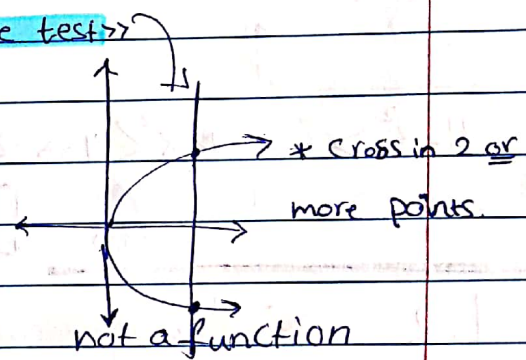 e test>>
* Cross in 2 or
more points.
not a function